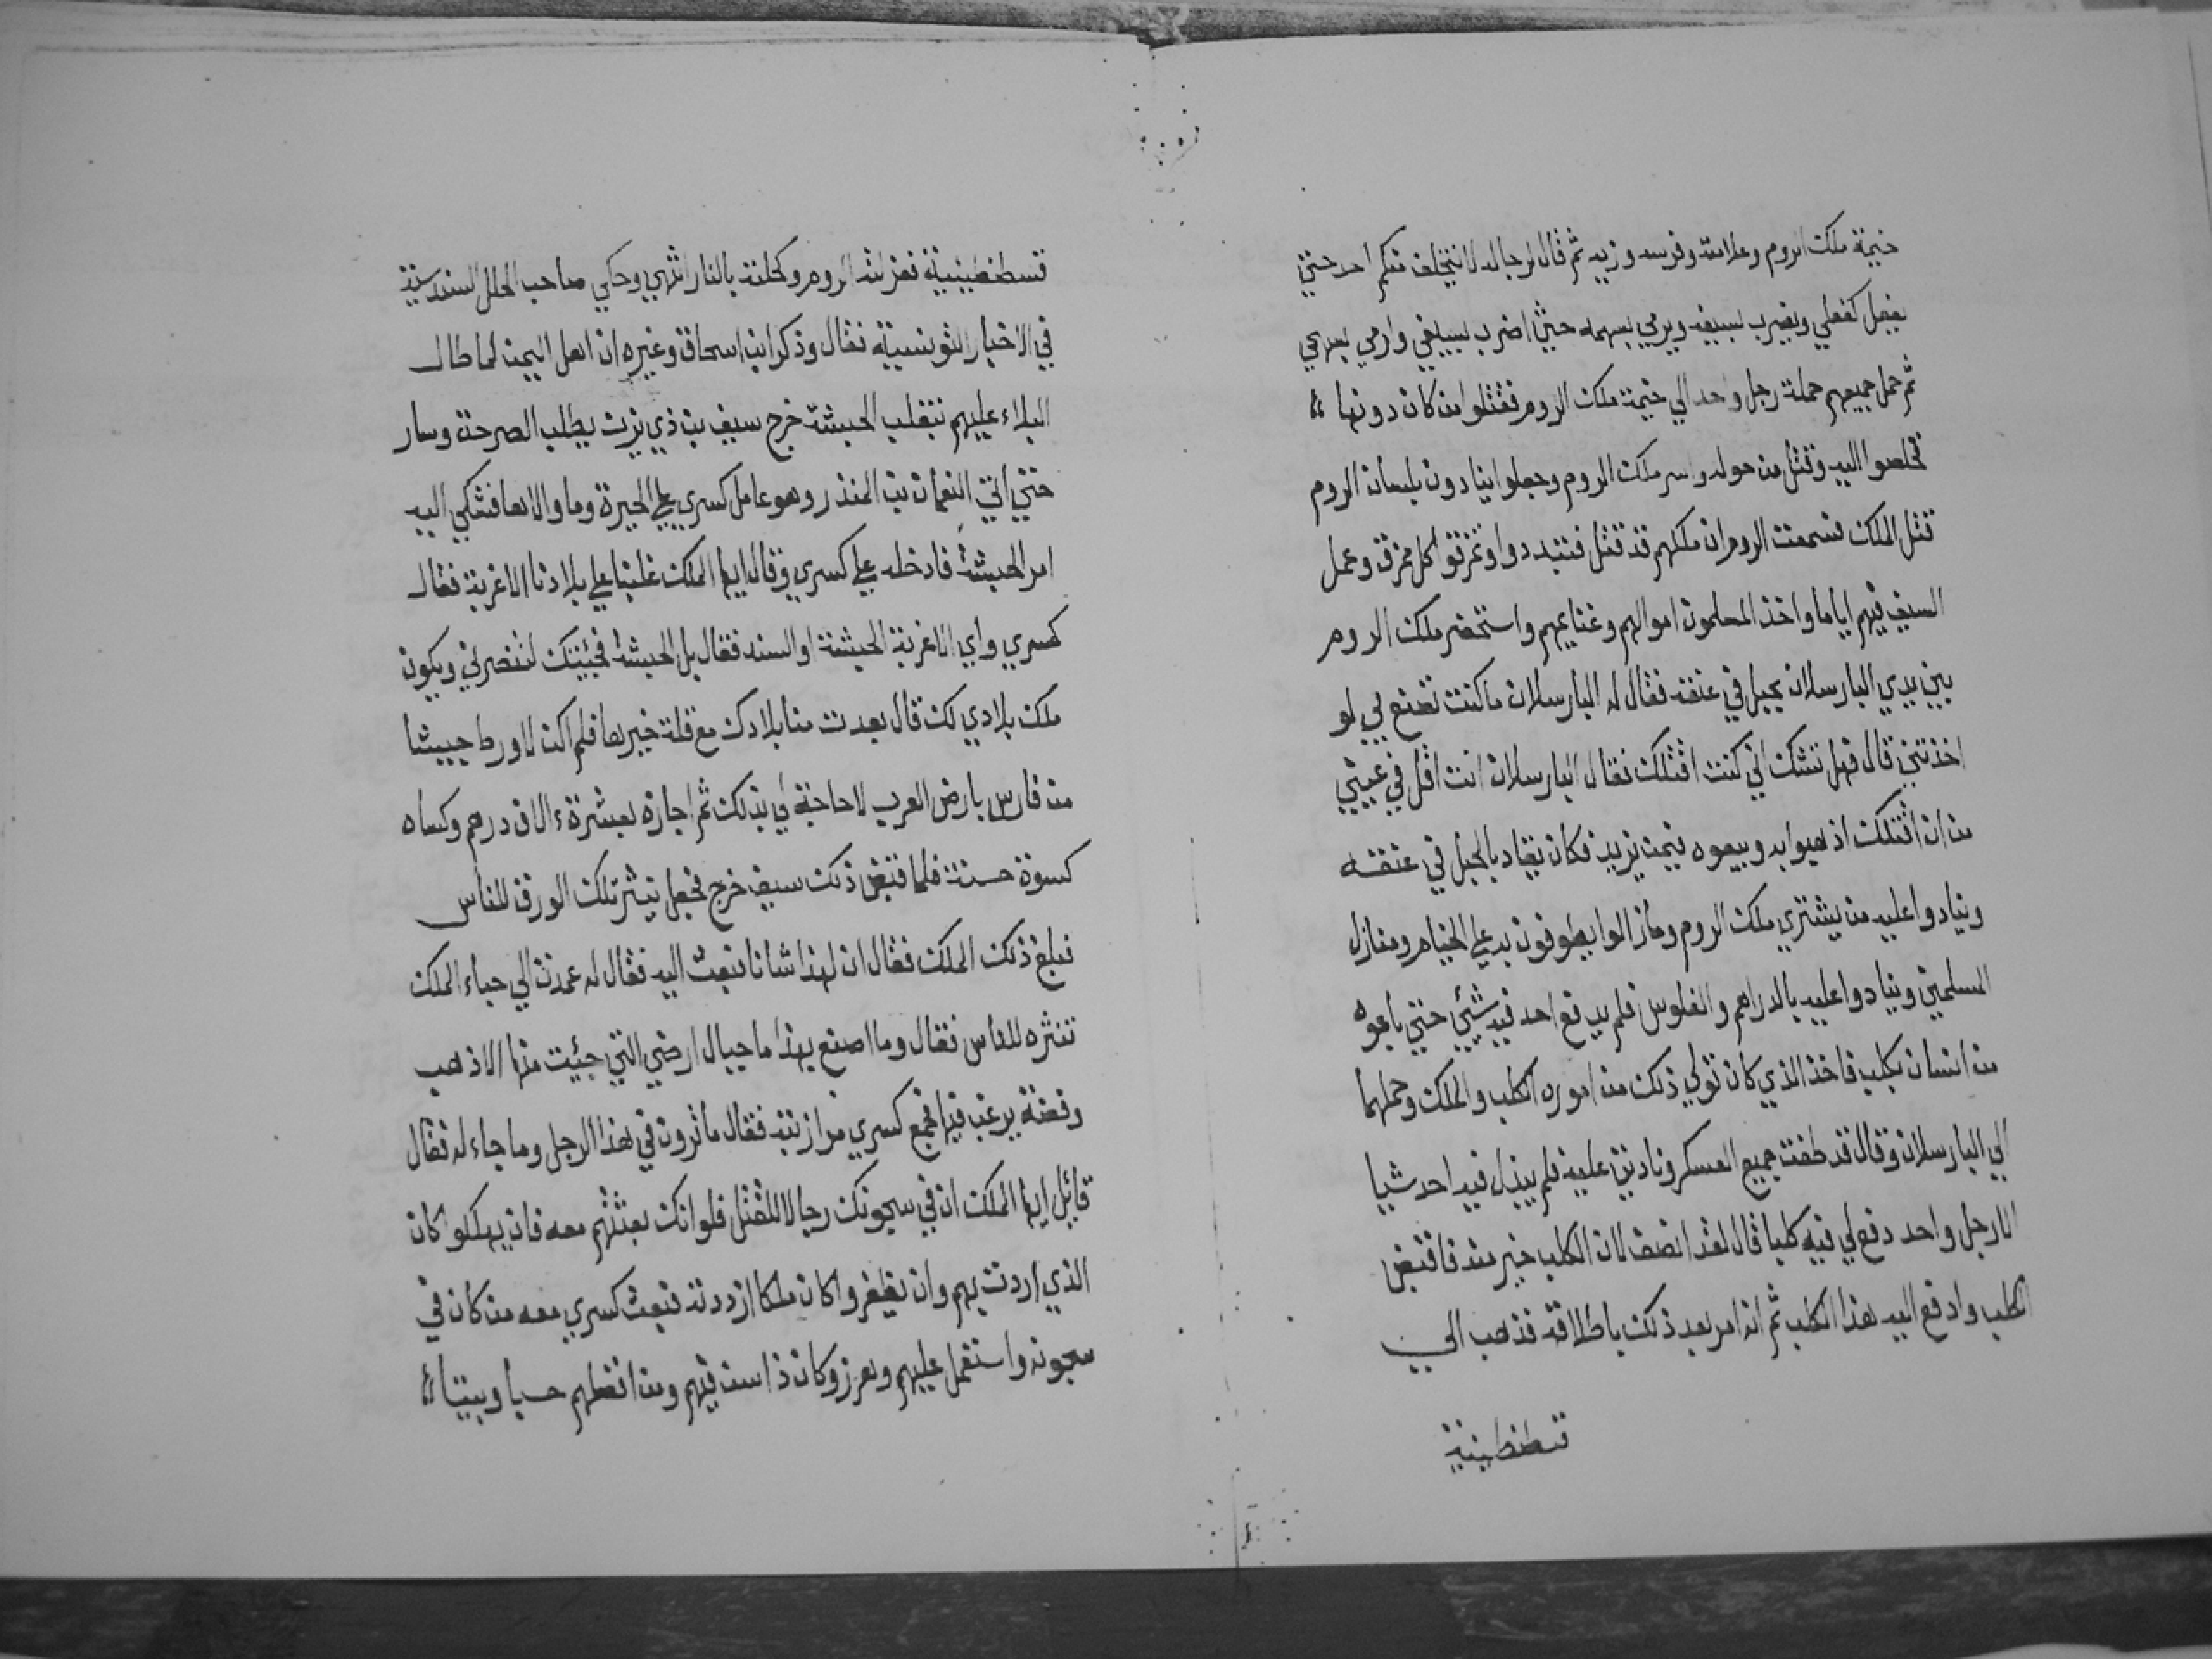 خيمة ملك الروم وعلامته وفرسه وزيه ثم قال لرجاله لا يتخلف منكم احد حتي
يفعل كفعلي ويضرب بسيفه ويرمي بسهمه حيث اضرب بسيفي وارمي بسهمي
ثم حمل جميعهم حملة رجل واحد الي خيمة ملك الروم فقتلوا من كان دونها
فخلصوا اليه وقتل من حوله واسر ملك الروم وجعلوا ينادون بلسان الروم
قتل الملك فسمعت الروم ان ملكهم قد قتل فتبددوا وتمزقوا كل ممزق وعمل
السيف فيهم اياما واخذ المسلمون اموالهم وغنايمهم واستحضر ملك الروم
بين يدي البارسلان بحبل في عنقه فقال له البارسلان ما كنت تصنع بي لو
اخذتني قال فهل تشك اني كنت اقتلك فقال البارسلان انت اقل في عيني
من ان اقتلك اذهبوا به وبيعوه فيمن يزيد فكان يقاد بالحبل في عنقه
وينادوا عليه من يشتري ملك الروم ومازالوا يطوفون به علي الخيام ومنازل
المسلمين وينادوا عليه بالدراهم والفلوس فلم يدفع احد فيه شيئي حتي باعوه
من انسان بكلب فاخذ الذي كان تولي ذلك من اموره الكلب والملك وحملهما
الي البارسلان وقال قد طفت جميع العسكر وناديت عليه فلم يبذل فيه احد شيا
الا رجل واحد دفع لي فيه كلبا قال لقد انصف لان الكلب خير منه فاقبض
الكلب وادفع اليه هذا الكلب ثم انه امر بعد ذلك باطلاقه فذهب الي
قسطنطينية
قسطنطينية فعزلته الروم وكحلته بالنار انتهي وحكي صاحب الحلل السندسية
في الاخبار التونسية فقال وذكر ابن اسحاق وغيره ان اهل اليمن لما طال
البلاء عليهم بتغلب الحبشة خرج سيف بن ذي يزن يطلب الصرخة وسار
حتي اتي النعمان بن المنذر وهو عامل كسري علي الحيرة وما والاها فشكي اليه
امر الحبشة فادخله علي كسري وقال ايها الملك غلبنا علي بلادنا الاغربة فقال
كسري واي الاغربة الحبشة او السند فقال بل الحبشة فجئتك لتنصرني ويكون
ملك بلادي لك قال بعدت منا بلادك مع قلة خيرها فلم اكن لاورط جيشا
من فارس بارض العرب لا حاجة لي بذلك ثم اجازه بعشرة ءالاف درهم وكساه
كسوة حسنة فلما قبض ذلك سيف خرج فجعل ينثر تلك الورق للناس
فبلغ ذلك الملك فقال ان لهذا شانا فبعث اليه فقال له عمدت الي حباء الملك
تنثره للناس فقال وما اصنع بهذا ما جبال ارضي التي جيئت منها الا ذهب
وفضة يرغب فيها فجمع كسري مرازبته فقال ما ترون في هذا الرجل وما جاء له فقال
قائل ايها الملك ان في سجونك رجالا للقتل فلو انك بعثتهم معه فان يهلكوا كان
الذي اردت بهم وان يظفروا كان ملكا ازددته فبعث كسري معه من كان في
سجونه واستعمل عليهم وهرز وكان ذا سن فيهم ومن افضلهم حسبا وبيتا